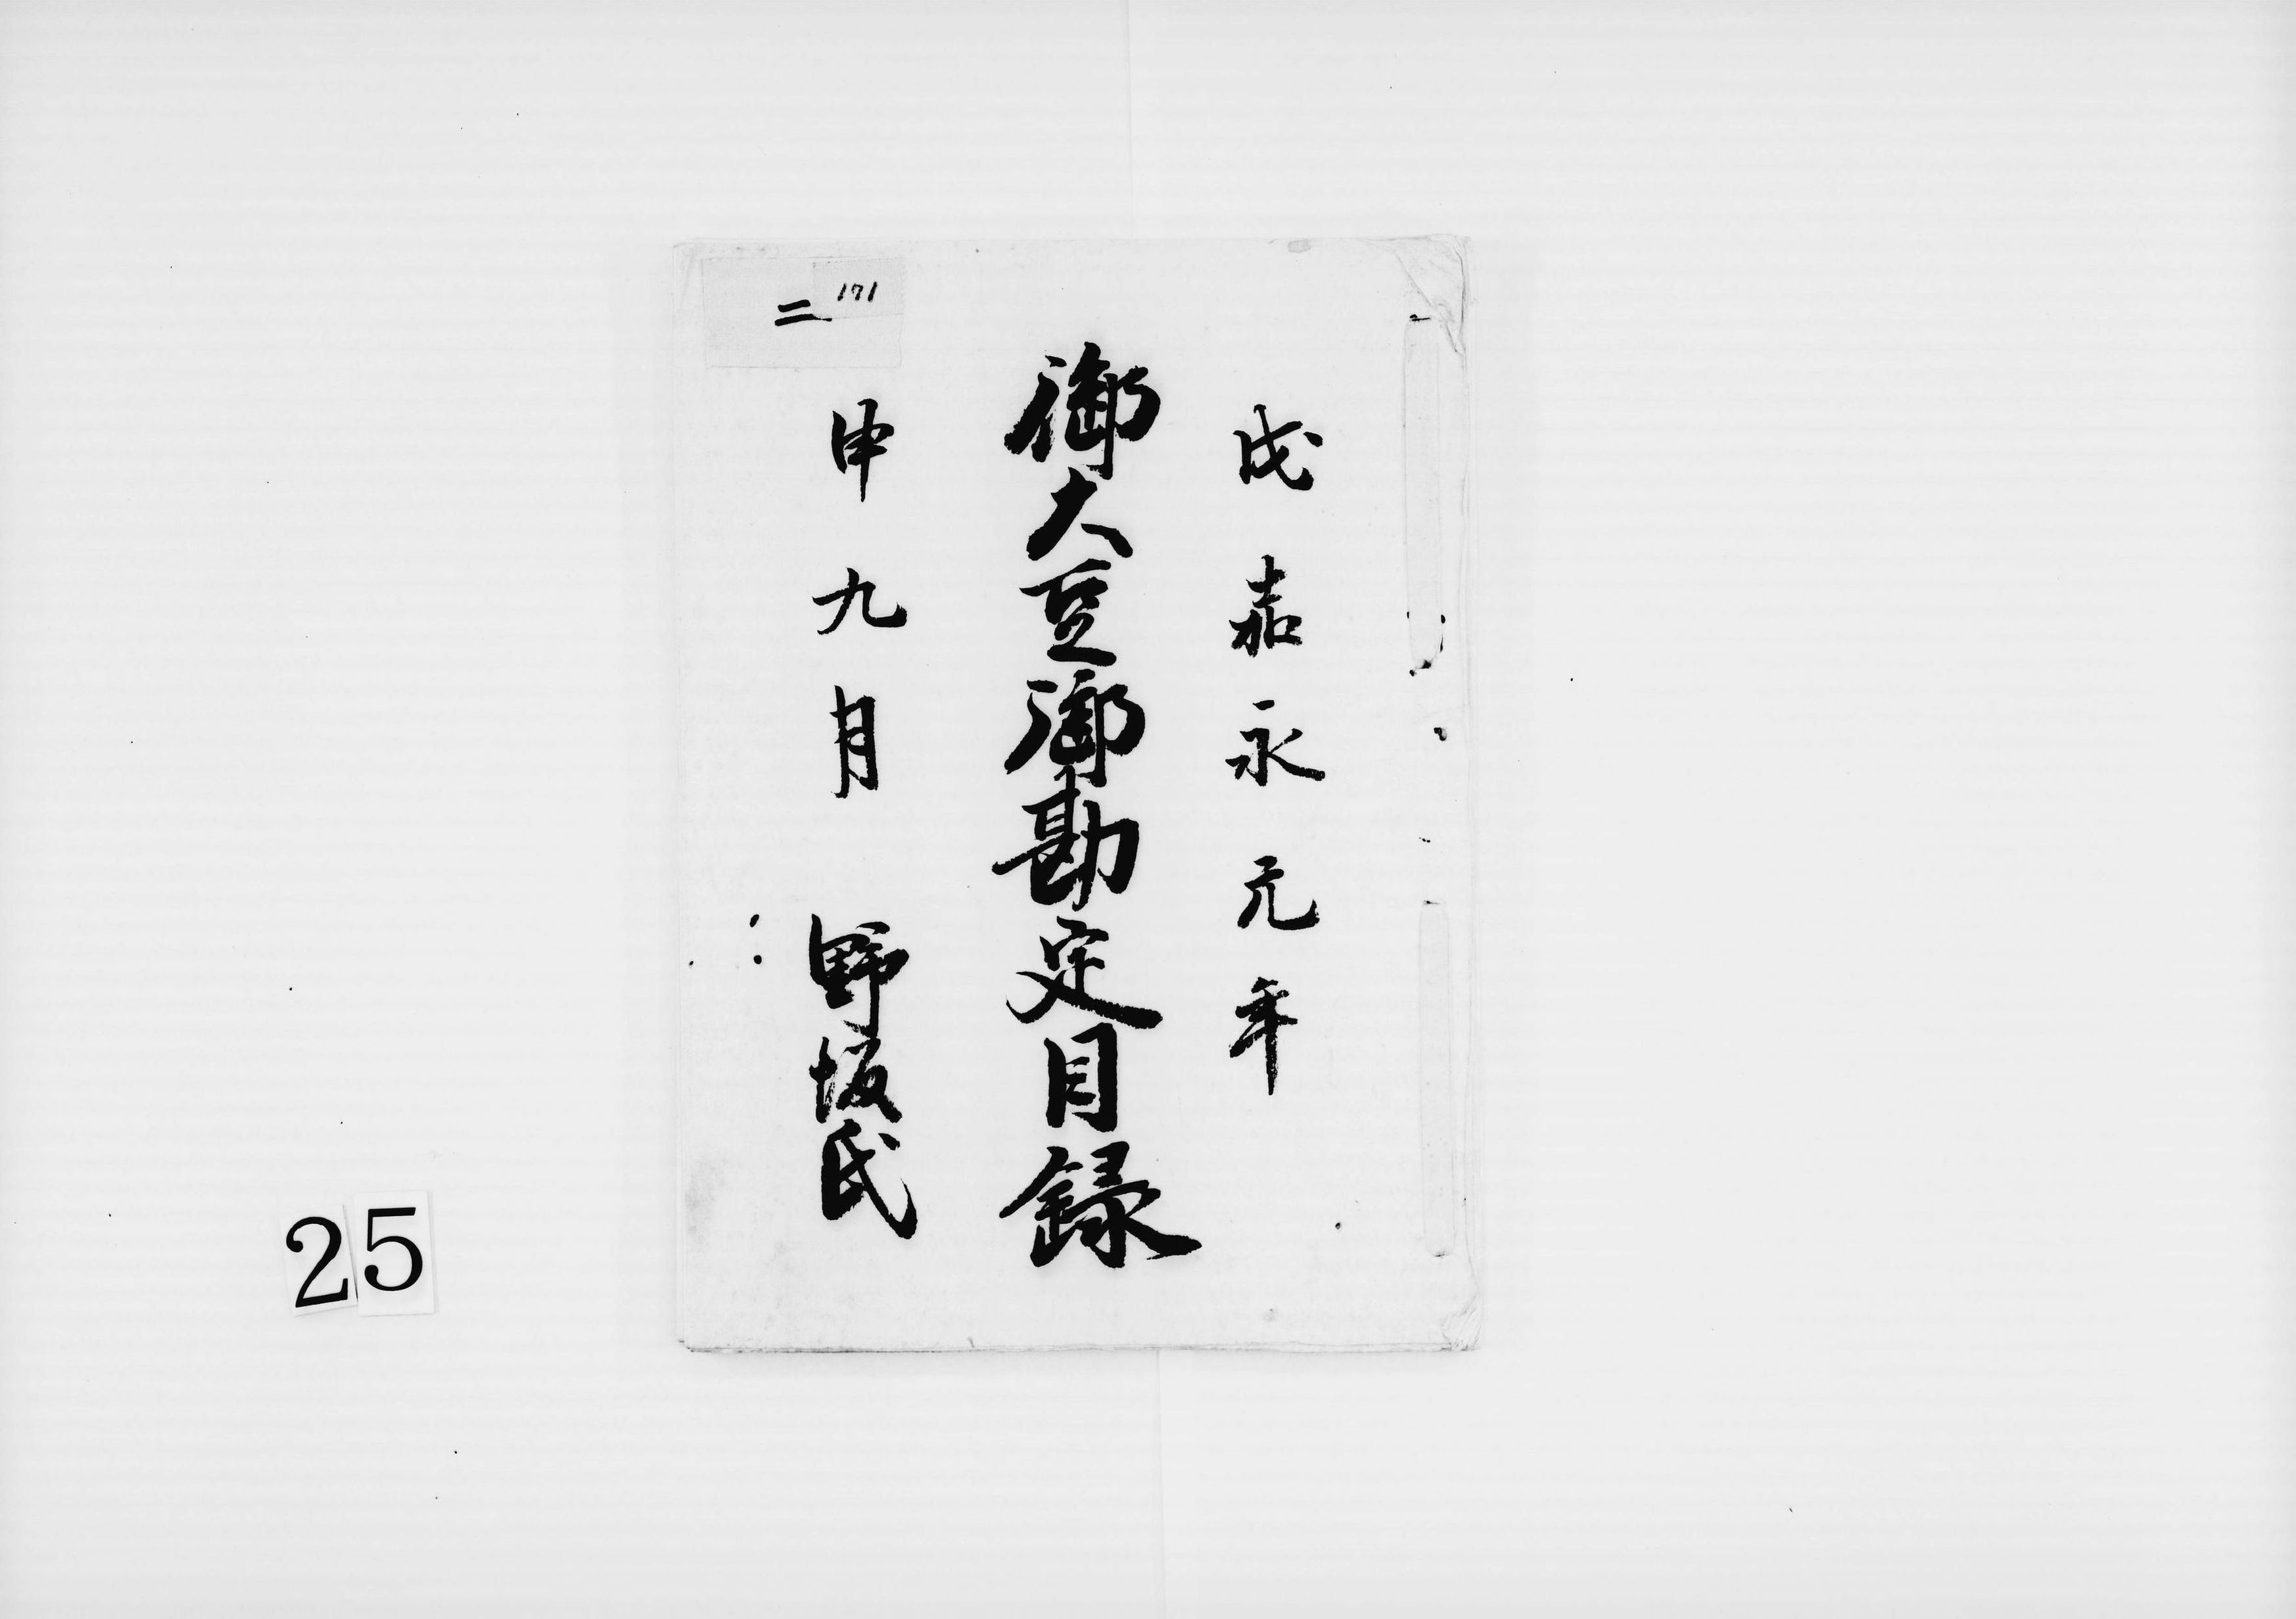 戊嘉永元年
御大豆御勘定目録
申九月 野坂氏
二
171
25